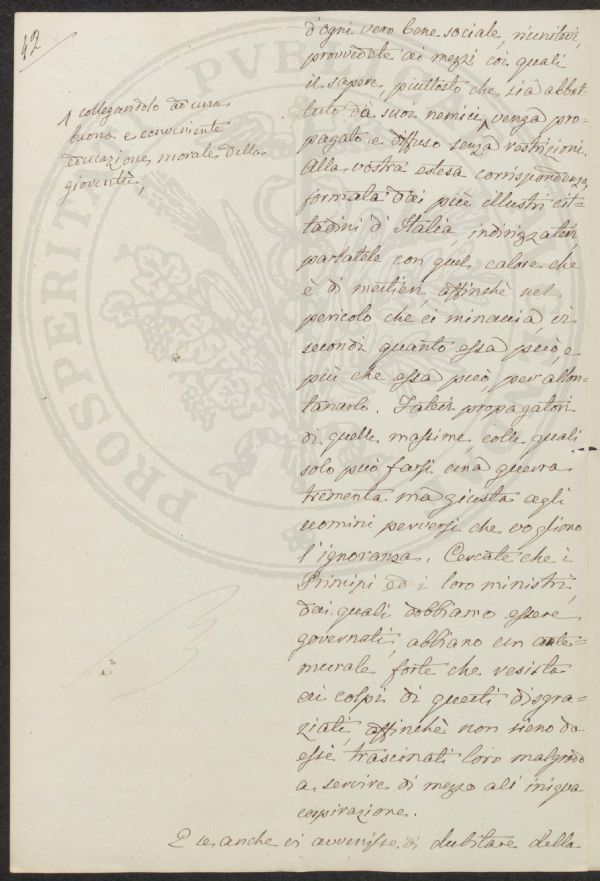 42
d'ogni vero bene sociale, riunitevi,
provvedete ai mezzi coi quali
il sapere, piuttosto che sia abbat-
tuto da suoi nemici, venga pro-
pagato e diffuso senza restrizioni.
Alla vostra estesa corrispondenza,
formata dai più illustri cit-
tadini d'Italia, indirizzatevi,
parlatele con quel calore che
è di mestieri, affinchè nel
pericolo che ci minaccia, ci
secondi quanto essa può, e
più che essa può, per allon-
tanarlo. Fatevi propagatori
di quelle massime, colle quali
solo può farsi una guerra
trementa ma giusta agli
uomini perversi che vogliono
l'ignoranza. Cercate che i
Principi ed i loro ministri,
dai quali dobbiamo essere
governati, abbiano un ante-
murale forte che resista
ai colpi di questi disgra-
ziati, affinchè non sieno da
essi trascinati loro malgrado
a servire di mezzo all iniqua
cospirazione.
E se anche ci avvenisse di dubitare della
collegandolo ad una
buona e conveniente
educazione morale della
gioventù,
PVBLICA
PROSPERITA